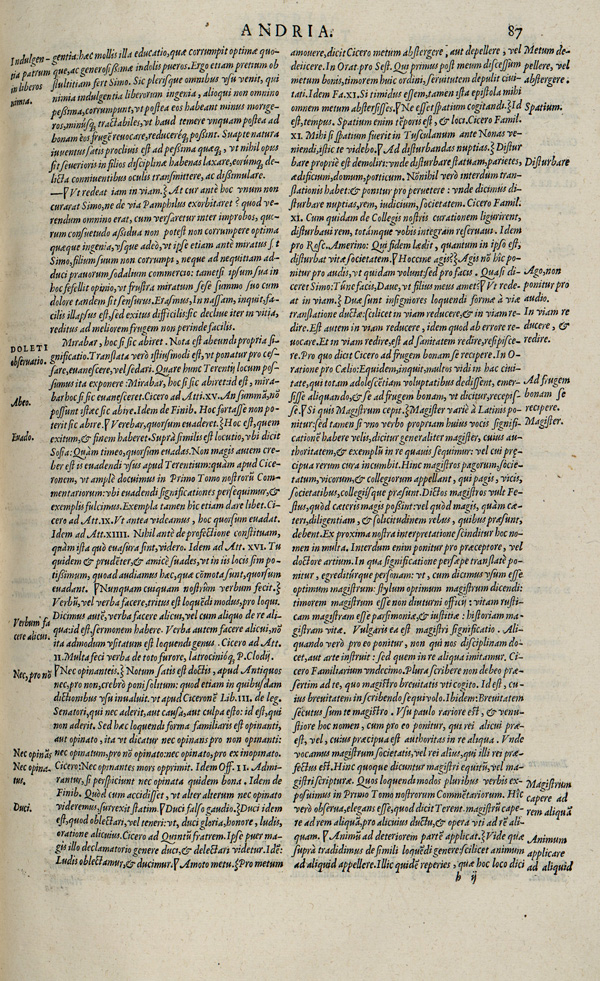 ANDRIA. 87
Indulgen-
tia patrum
in liberos
nimia.
gentia: hæc mollis illa educatio, quæ corrumpit optimæ quo-
que, ac generosissimæ indolis pueros. Ergo etiam pretium ob
stultitiam fert Simo. Sic plerisque omnibus vsu venit, qui
nimia indulgentia liberorum ingenia, alioqui non omnino
pessima, corrumpunt, vt postea eos habeant minus morige-
ros, minusq́; tractabiles, vt haud temere vnquam postea ad
bonam eos frugē reuocare, reducereq́; possint. Suapte natura
iuuentus satis procliuis est ad pessima quæq;, vt nihil opus
sit seuerioris in filios disciplinæ habenas laxare, eorúmq́; de-
licta conniuentibus oculis transmittere, ac dissimulare.
—¶ Vt redeat iam in viam.} At cur antè hoc vnum non
curarat Simo, ne de via Pamphilus exorbitaret? quod ve-
rendum omnino erat, cum versaretur inter improbos, quo-
rum consuetudo assidua non potest non corrumpere optima
quæque ingenia, vsque adeò, vt ipse etiam antè miratus sit
Simo, filium suum non corrumpi, neque ad nequitiam ad-
duci prauorum sodalium commercio: tametsi ipsum sua in
hoc fefellit opinio, vt frustra miratum sese summo suo cum
dolore tandem sit sensurus. Erasmus, In nassam, inquit, fa-
cilis illapsus est, sed exitus difficilis: sic decliue iter in vitia,
reditus ad meliorem frugem non perinde facilis.
DOLETI
obseruatio.
Mirabar, hoc si sic abiret. Nota est abeundi propria si-
gnificatio. Translata verò istiusmodi est, vt ponatur pro ces-
sare, euanescere, vel sedari. Quare hunc Terentij locum pos-
sumus ita exponere: Mirabar, hoc si sic abiret: id est, mira-
bar hoc si sic euanesceret. Cicero ad Att. XV. An summā, nō
possunt istæ sic abire. Idem de Finib. Hoc fortasse non po-
terit sic abire. ¶ Verebar, quorsum euaderet.} Hoc est, quem
exitum, & finem haberet. Suprà similis est locutio, vbi dicit
Sosia: Quàm timeo, quorsum euadas. Non magis autem cre-
ber est is euadendi vsus apud Terentium: quàm apud Cice-
ronem, vt amplè docuimus in Primo Tomo nostrorū Com-
mentariorum: vbi euadendi significationes persequimur, &
exemplis fulcimus. Exempla tamen hîc etiam dare libet. Ci-
cero ad Att. IX. Vt antea videamus, hoc quorsum euadat.
Idem ad Att. XIIII. Nihil antè de profectione constituam,
quàm ista quò euasura sint, videro. Idem ad Att. XVI. Tu
quidem & prudēter, & amicè suades, vt in iis locis sim po-
tissimum, quoad audiamus hæc, quæ cōmota sunt, quorsum
euadant. ¶ Nunquam cuiquam nostrūm verbum fecit.}
Abeo.
Euado.
Verbum fa
cere alicui.
Verbū, vel verba facere, tritus est loquēdi modus, pro loqui.
Dicimus autē, verba facere alicui, vel cum aliquo de re ali-
qua: id est, sermonem habere. Verba autem facere alicui, nō
ita admodum vsitatum est loquendi genus. Cicero ad Att.
II. Multa feci verba de toto furore, latrociniōq́; P. Clodij.
Nec, pro nō
¶ Nec opinanteis.} Notum satis est doctis, apud Antiquos
nec, pro non, crebrò poni solitum: quod etiam in quibusdam
dictionibus vsu inualuit. vt apud Ciceronē Lib. III. de leg.
Senatori, qui nec aderit, aut causa, aut culpa esto: id est, qui
non aderit. Sed hæc loquendi forma familiaris est opinanti,
aut opinato, ita vt dicatur nec opinans pro non opinanti: &
Nec opinās
Nec opina-
tus.
nec opinatum, pro nō opinato: nec opinato, pro ex inopinato.
Cicero: Nec opinantes mors opprimit. Idem Off. II. Admi-
rantur, si perspiciunt nec opinata quidem bona. Idem de
Finib. Quòd cum accidisset, vt alter alterum nec opinato
videremus, surrexit statim. ¶ Duci falso gaudio.} Duci idem
Duci.
est, quod oblectari, vel teneri: vt, duci gloria, honore, ludis,
oratione alicuius. Cicero ad Quintū fratrem. Ipse puer ma-
gis illo declamatorio genere duci, & delectari videtur. Idē:
Ludis oblectamur, & ducimur. ¶ Amoto metu.} Pro metum
amouere, dicit Cicero metum abstergere, aut depellere, vel
deiicere. In Orat. pro Sest. Qui primus post meum discessum
metum bonis, timorem huic ordini, seruitutem depulit ciui-
tati. Idem Fa. XI. Si timidus essem, tamen ista epistola mihi
omnem metum abstersisses. ¶ Ne esset spatium cogitandi.} Id
est, tempus. Spatium enim tēporis est, & loci. Cicero Famil.
XI. Mihi si spatium fuerit in Tusculanum ante Nonas ve-
niendi, istic te videbo. ¶ Ad disturbandas nuptias.} Distur
bare propriè est demoliri: vnde disturbare statuam, parietes,
ædificium, domum, porticum. Nōnihil verò interdum tran-
slationis habet: & ponitur pro peruetere: vnde dicimus di-
sturbare nuptias, rem, iudicium, societatem. Cicero Famil.
XI. Cum quidam de Collegis nostris curationem ligurirent,
disturbaui rem, totámque vobis integram reseruaui. Idem
pro Rosc. Amerino: Qui fidem lædit, quantum in ipso est,
disturbat vitæ societatem. ¶ Hoccine agis?} Agis nō hîc po-
nitur pro audis, vt quidam volunt: sed pro facis. Quasi di-
ceret Simo: Túne facis, Daue, vt filius meus amet? ¶ Vt rede-
at in viam.} Duæ sunt insigniores loquendi formæ à viæ
translatione ductæ: scilicet in viam reducere, & in viam re-
dire. Est autem in viam reducere, idem quod ab errore re-
uocare. Et in viam redire, est ad sanitatem redire, resipisce-
re. Pro quo dicit Cicero ad frugem bonam se recipere. In O-
ratione pro Cælio: Equidem, inquit, multos vidi in hac ciui-
tate, qui totam adolescētiam voluptatibus dedissent, emer-
sisse aliquando, & se ad frugem bonam, vt dicitur, recepis-
se. ¶ Si quis Magistrum cepit.} Magister variè à Latinis po-
nitur: sed tamen si vno verbo propriam huius vocis signifi-
cationē habere velis, dicitur generaliter magister, cuius au-
thoritatem, & exempli in re quauis sequimur: vel cui præ-
cipua rerum cura incumbit. Hinc magistros pagorum, socie-
tatum, vicorum, & collegiorum appellant, qui pagis, vicis,
societatibus, collegiisque præsunt. Dictos magistros vult Fe-
stus, quòd cæteris magis possint: vel quòd magis, quàm cæ-
teri, diligentiam, & solicitudinem rebus, quibus præsunt,
debent. Ex proxima nostra interpretatione scinditur hoc no-
men in multa. Interdum enim ponitur pro præceptore, vel
doctore artium. In qua significatione persæpe translatè po-
nitur, egrediturque personam: vt, cum dicimus vsum esse
optimum magistrum: stylum optimum magistrum dicendi:
timorem magistrum esse non diuturni officij: vitam rusti-
cam magistram esse parsimoniæ, & iustitiæ: historiam ma-
gistram vitæ. Vulgaris ea est magistri significatio. Ali-
quando verò pro eo ponitur, non qui nos disciplinam do-
cet, aut arte instruit: sed quem in re aliqua imitamur. Ci-
cero Familiarium vndecimo. Plura scribere non debeo præ-
sertim ad te, quo magistro breuitatis vti cogito. Id est, cu-
ius breuitatem in scribendo sequi volo. Ibidem: Breuitatem
secutus sum te magistro. Vsu paulo rariore est, & venu-
stiore hoc nomen, cum pro eo ponitur, qui rei alicui præ-
est, vel, cuius præcipua est authoritas in re aliqua. Vnde
vocamus magistrum societatis, vel rei alius, qui illi rei præ-
fectus est. Hinc quoque dicuntur magistri equitū, vel ma-
gistri scripturæ. Quos loquendi modos pluribus verbis ex-
posuimus in Primo Tomo nostrorum Commētariorum. Hîc
verò obserua, elegans esse, quod dicit Terent. magistrū cape-
re ad rem aliquā, pro alicuius ductu, & opera vti ad rē ali-
quam. ¶ Animū ad deteriorem partē applicat.} Vide quæ
suprà tradidimus de simili loquēdi genere: scilicet animum
ad aliquid appellere. Illic quidē reperies, quæ hoc loco dici
Metum de-
pellere, vel
abstergere.
Spatium.
Disturbare
Ago, non
ponitur pro
audio.
In viam re
ducere, &
redire.
Ad frugem
bonam se
recipere.
Magister.
Magistrum
capere ad
rem aliquā
Animum
applicare
ad aliquid
h ij